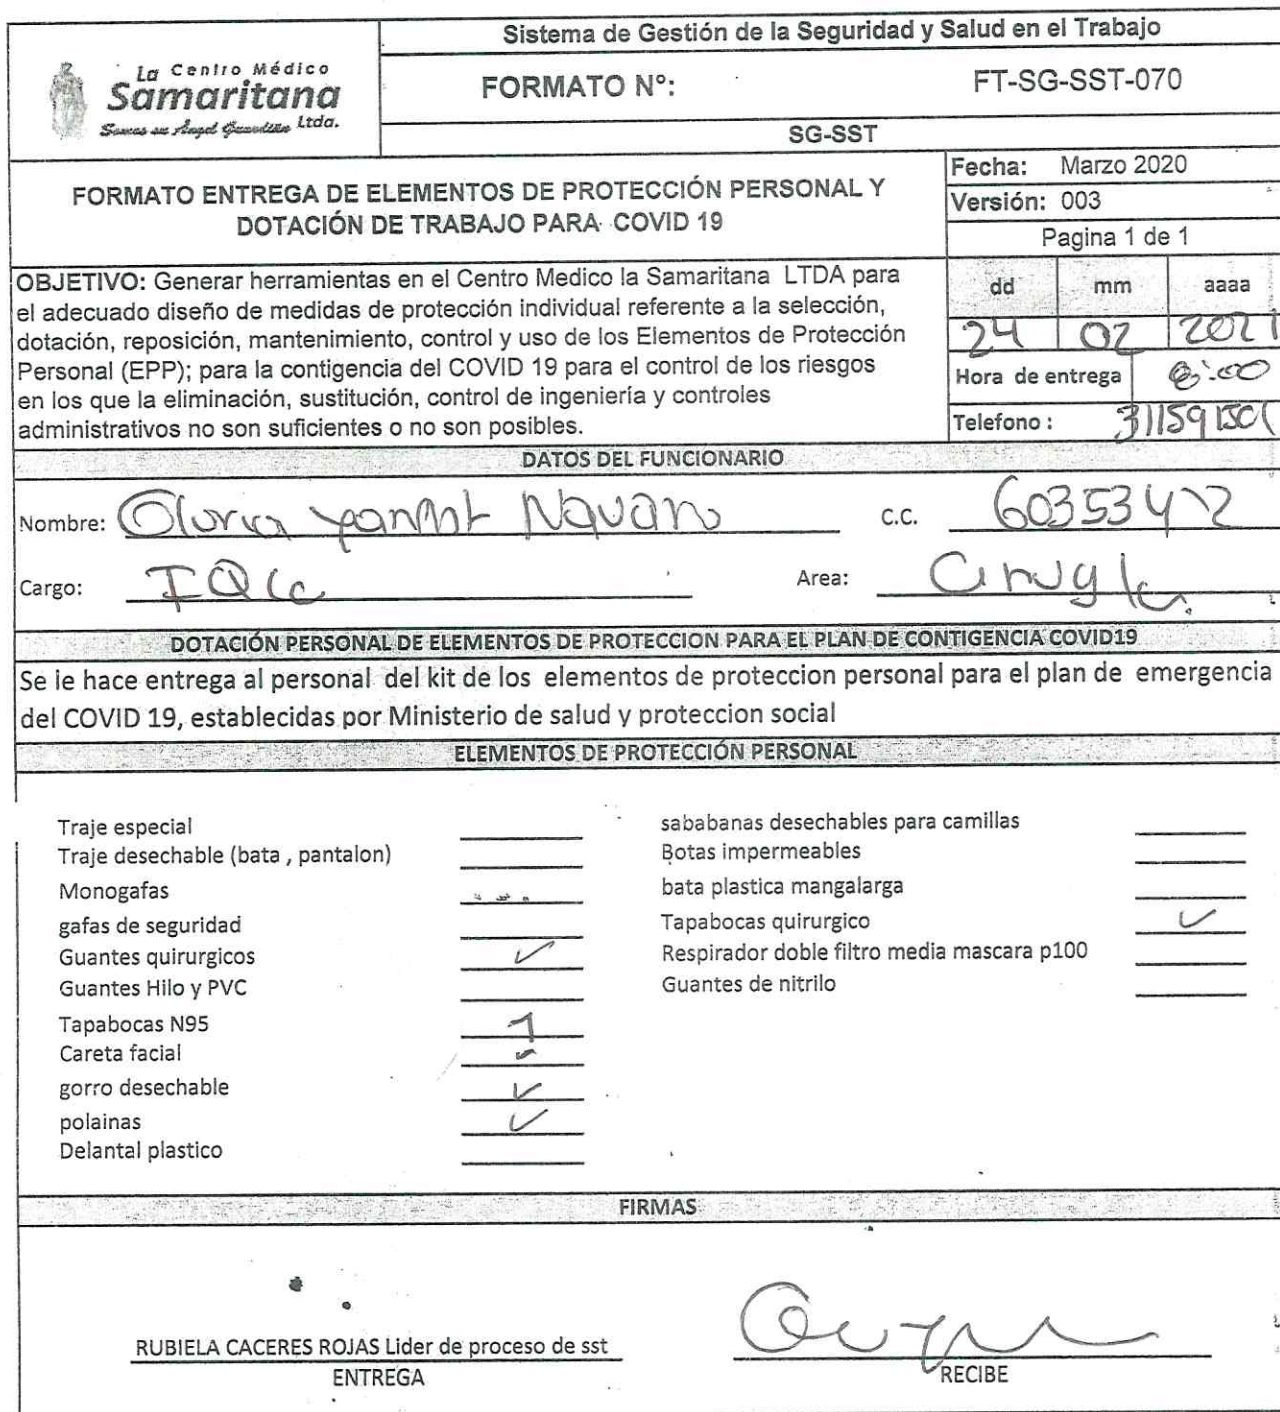 La Centro Médico
Samaritana
Somos su Ángel Guardián Ltda.
Sistema de Gestión de la Seguridad y Salud en el Trabajo
FORMATO N°: FT-SG-SST-070
SG-SST
FORMATO ENTREGA DE ELEMENTOS DE PROTECCIÓN PERSONAL Y
DOTACIÓN DE TRABAJO PARA COVID 19
Fecha: Marzo 2020
Versión: 003
Pagina 1 de 1
OBJETIVO: Generar herramientas en el Centro Medico la Samaritana LTDA para
el adecuado diseño de medidas de protección individual referente a la selección,
dotación, reposición, mantenimiento, control y uso de los Elementos de Protección
Personal (EPP); para la contigencia del COVID 19 para el control de los riesgos
en los que la eliminación, sustitución, control de ingeniería y controles
administrativos no son suficientes o no son posibles.
dd mm aaaa
24 02 2021
Hora de entrega 8:00
Telefono : 31159150
DATOS DEL FUNCIONARIO
Nombre: Gloria Navarro C.C. 60353412
Cargo: Area: Cirugia
DOTACIÓN PERSONAL DE ELEMENTOS DE PROTECCION PARA EL PLAN DE CONTIGENCIA COVID19
Se le hace entrega al personal del kit de los elementos de proteccion personal para el plan de emergencia
del COVID 19, establecidas por Ministerio de salud y proteccion social
ELEMENTOS DE PROTECCIÓN PERSONAL
Traje especial
Traje desechable (bata , pantalon)
Monogafas
gafas de seguridad
Guantes quirurgicos ✓
Guantes Hilo y PVC
Tapabocas N95 1
Careta facial
gorro desechable ✓
polainas ✓
Delantal plastico
sababanas desechables para camillas
Botas impermeables
bata plastica mangalarga
Tapabocas quirurgico ✓
Respirador doble filtro media mascara p100
Guantes de nitrilo
FIRMAS
RUBIELA CACERES ROJAS Lider de proceso de sst
ENTREGA
RECIBE